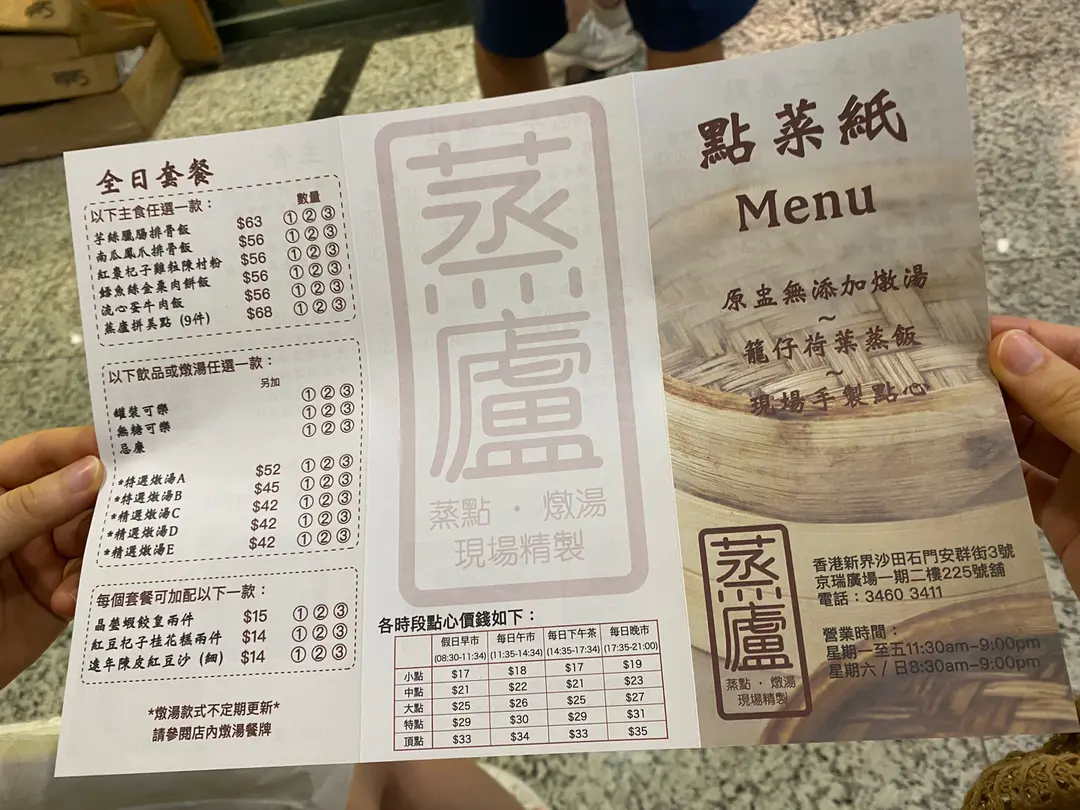 全日套餐
以下主食任選一款： 數量
芋絲臘腸排骨飯 $63 ①②③
南瓜鳳爪排骨飯 $56 ①②③
紅棗杞子雞粒陳村粉 $56 ①②③
鱈魚絲金粟肉餅飯 $56 ①②③
流心荃牛肉飯 $56 ①②③
蒸廬拼美點 (9件) $68 ①②③
以下飲品或燉湯任選一款：
另加
罐裝可樂 ①②③
無糖可樂 ①②③
忌廉 ①②③
*特選燉湯A $52 ①②③
*特選燉湯B $45 ①②③
*精選燉湯C $42 ①②③
*精選燉湯D $42 ①②③
*精選燉湯E $42 ①②③
每個套餐可加配以下一款：
晶瑩蝦餃皇兩件 $15 ①②③
紅豆杞子桂花糕兩件 $14 ①②③
遠年陳皮紅豆沙 (細) $14 ①②③
*燉湯款式不定期更新*
請參閱店內燉湯餐牌
蒸廬
蒸點．燉湯
現場精製
各時段點心價錢如下：
假日早市 每日午市 每日下午茶 每日晚市
(08:30-11:34) (11:35-14:34) (14:35-17:34) (17:35-21:00)
小點 $17 $18 $17 $19
中點 $21 $22 $21 $23
大點 $25 $26 $25 $27
特點 $29 $30 $29 $31
頂點 $33 $34 $33 $35
點菜紙
Menu
原盅無添加燉湯
~
籠仔荷葉蒸飯
~
現場手製點心
蒸廬
蒸點．燉湯
現場精製
香港新界沙田石門安群街3號
京瑞廣場一期二樓225號舖
電話：3460 3411
營業時間：
星期一至五11:30am-9:00pm
星期六 / 日8:30am-9:00pm